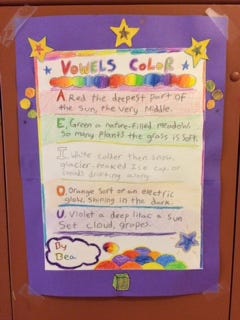 VOWELS COLOR
A Red the deepest part of
the Sun, the very Middle.
E, Green a nature-filled meadow,
So many Plants the grass is Soft.
I White colder then snow,
glacier-peaked Ice cup, or
clouds drifting along
O, Orange Sort of an electric
glow, Shining in the dark.
U, Violet a deep lilac a Sun
Set cloud, grapes.
By
Bea